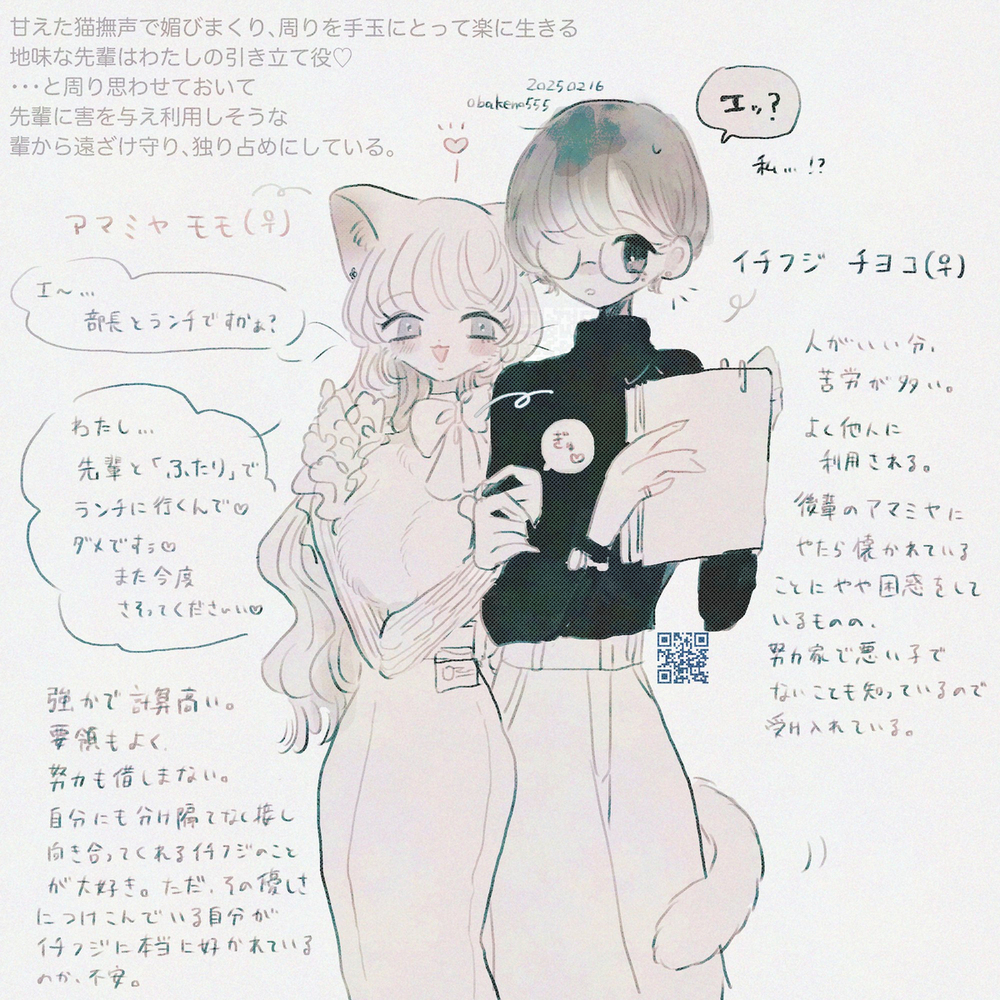 甘えた猫撫声で媚びまくり、周りを手玉にとって楽に生きる
地味な先輩はわたしの引き立て役♡
・・・と周り思わせておいて
先輩に害を与え利用しそうな
輩から遠ざけ守り、独り占めにしている。
20250216
obakeno555
エッ?
私…!?
アマミヤ モモ(♀)
イチフジ チヨコ(♀)
エ〜…
部長とランチですかぁ?
わたし…
先輩と「ふたり」で
ランチに行くんで♡
ダメですぅ♡
また今度
さそってくださぃぃ♡
ぎゅ♡
人がいい分、
苦労が多い。
よく他人に
利用される。
後輩のアマミヤに
やたら懐かれている
ことにやや困惑をして
いるものの、
努力家で悪い子で
ないことも知っているので
受け入れている。
強かで計算高い。
要領もよく、
努力も惜しまない。
自分にも分け隔てなく接し
向き合ってくれるイチフジのこと
が大好き。ただ、その優しさ
につけこんでいる自分が
イチフジに本当に好かれている
のか、不安。